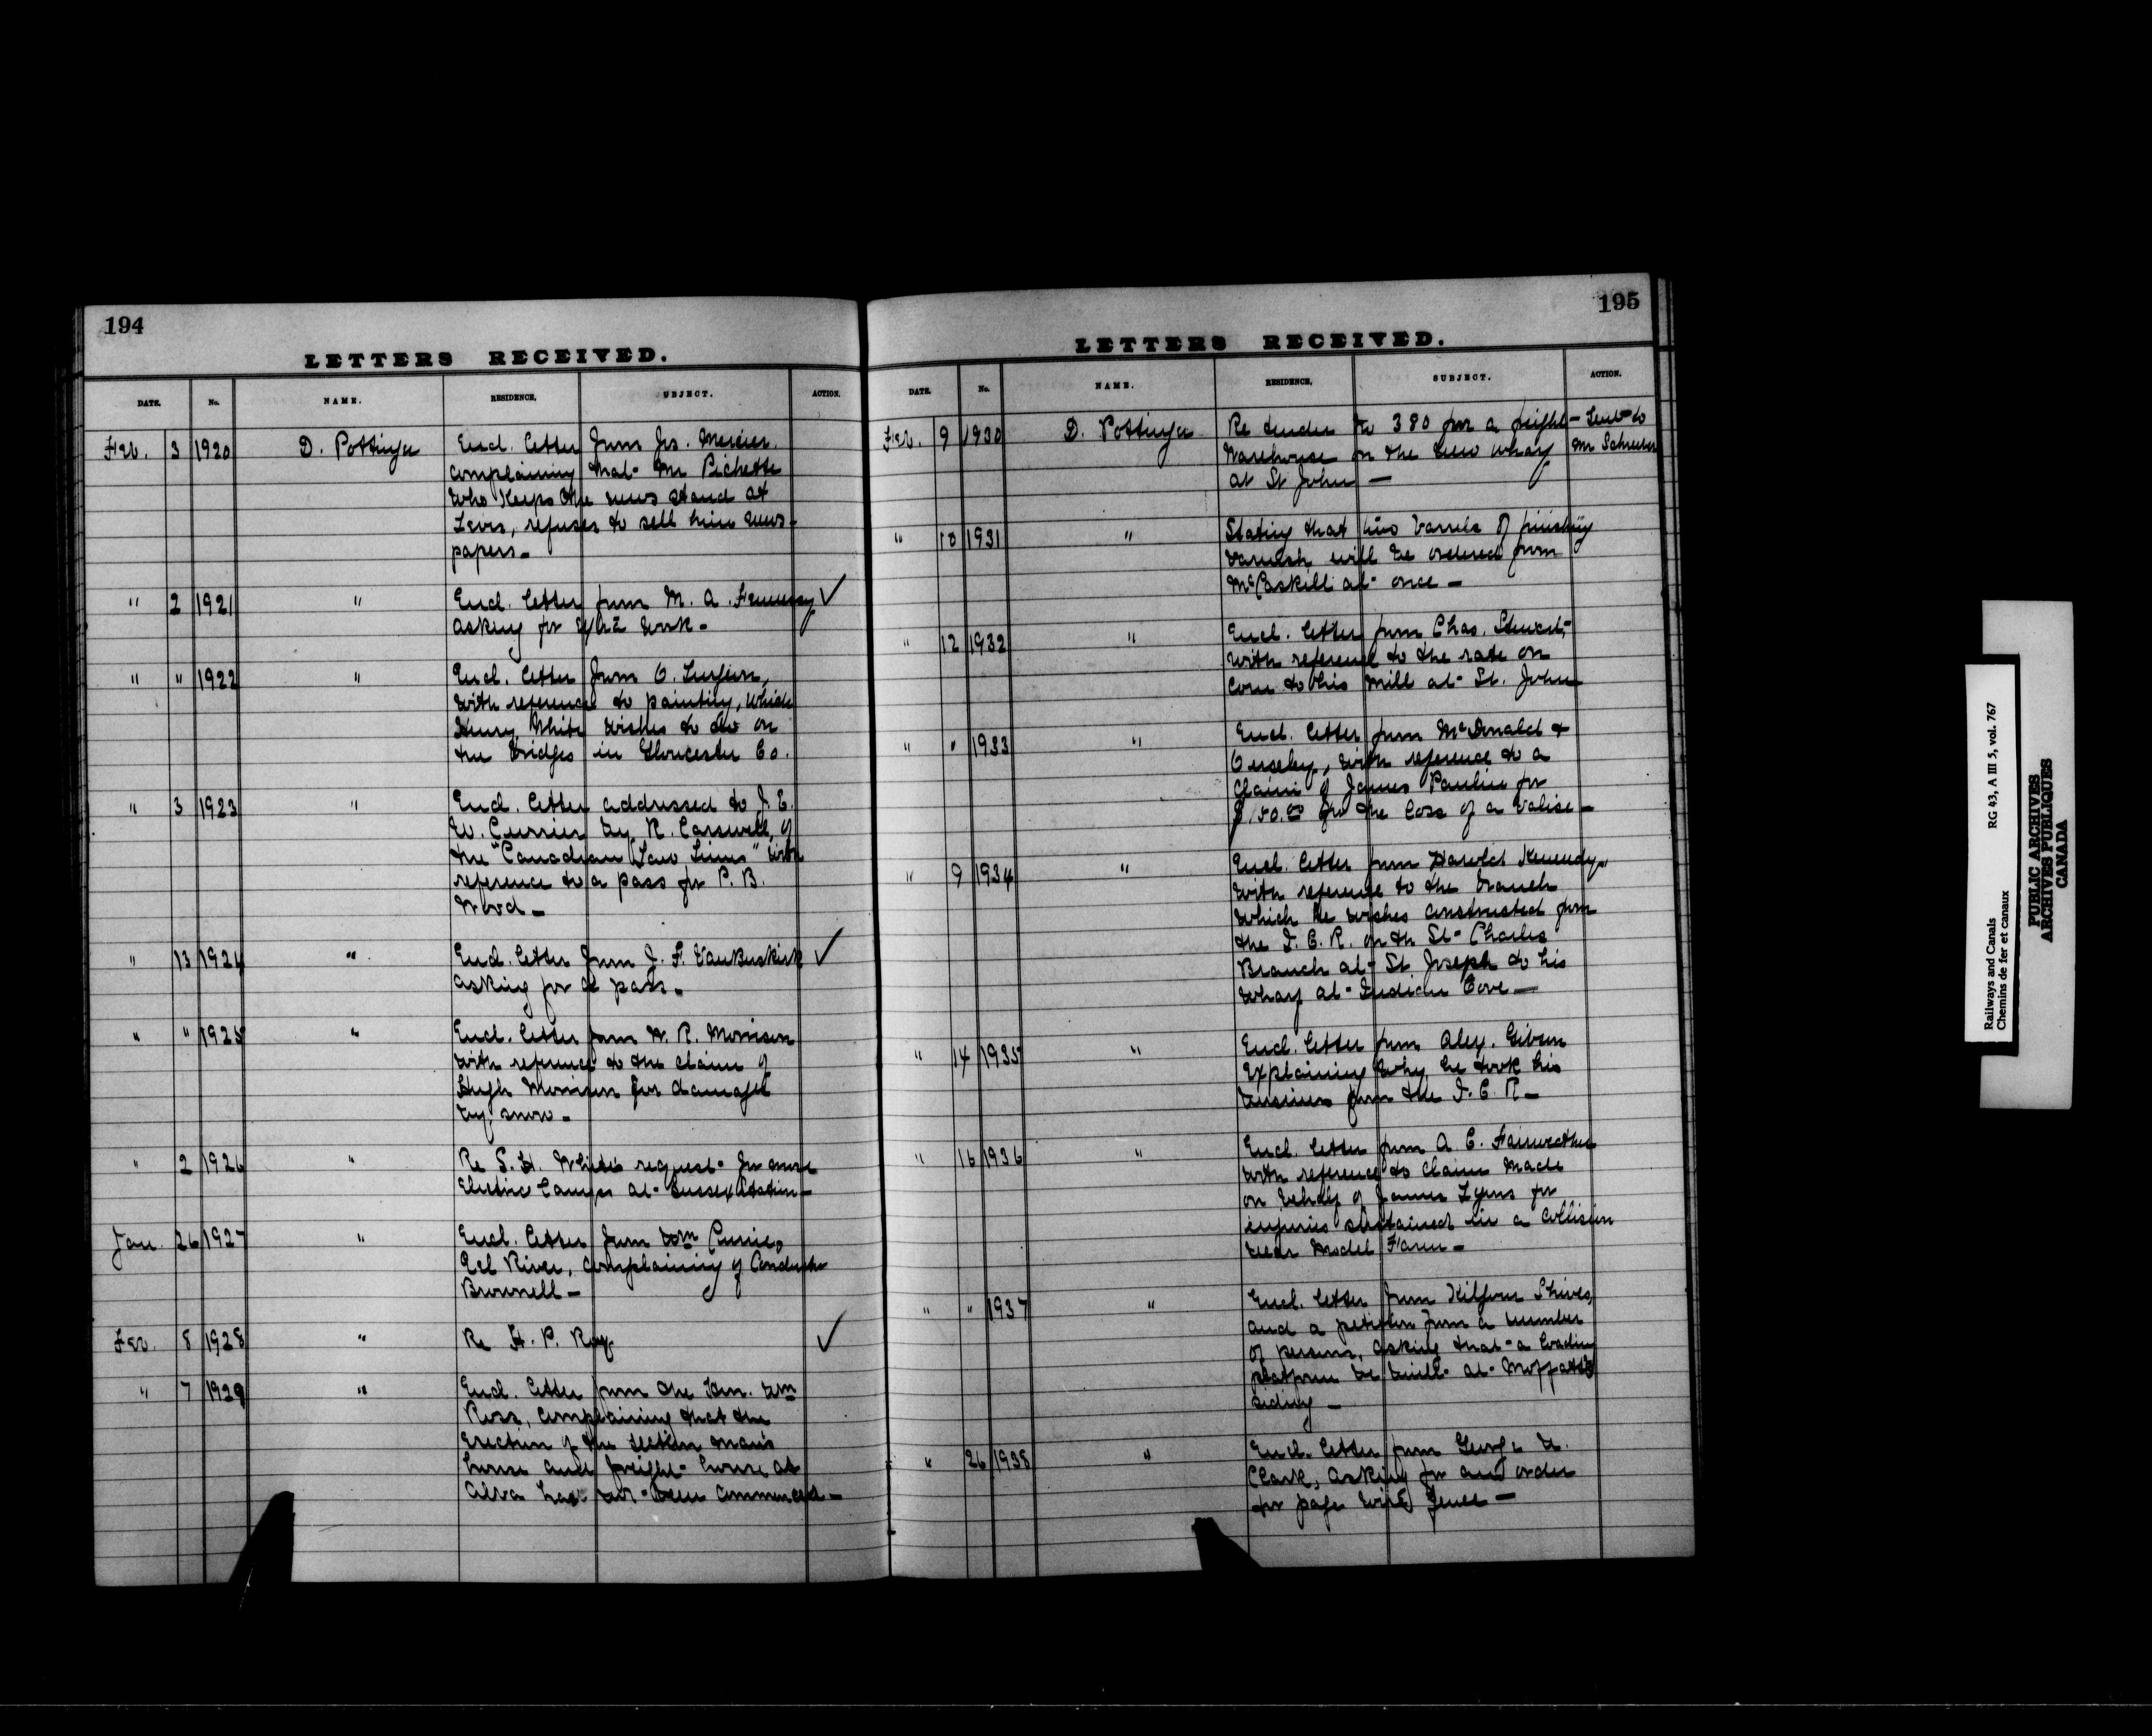 194
LETTERS RECEIVED.
DATE. No. NAME. RESIDENCE, UBJECT. ACTION.
Feb. 3 1920 D. Pottinger Encl. letter from Jrs. Mercier
complaining that Mr Pichette
who keeps the news stand at
Levis, refuses to sell him news-
papers -
" 2 1921 " Encl. letter from M. A. Fennessy ✓
asking for work -
" " 1922 " Encl. letter from O. Turgeon,
with reference to painting, which
Henry White wishes to do on
the bridges in Gloucester Co.
" 3 1923 " Encl. letter addressed to J. E.
W. Currier by R. Carswell, of
the "Canadian Law Times" with
reference to a pass for P. B.
Wood -
" 13 1924 " Encl. letter from J. F. VanBuskirk ✓
asking for a pass.
" " 1925 " Encl. letter from H. P. Morrison
with reference to the claim of
Hugh Morrison for damage
by snow -
" 2 1926 " Re S. H. White's request for more
Electric Lamps at Sussex Station -
Jan. 26 1927 " Encl. letter from Wm Currie,
Eel River, complaining of Conductor
Brownell -
Feb. 8 1928 " Re H. P. Roy. ✓
" 7 1929 " Encl. letter from the Hon. Wm
Ross, complaining that the
erection of the section man's
house and freight house at
Alva has not been commenced -
195
LETTERS RECEIVED.
DATE. No. NAME. RESIDENCE, SUBJECT. ACTION.
Feb. 9 1930 D. Pottinger Re tender No 380 for a freight - Sent to
Warehouse on the new wharf Mr Schreiber
at St John -
" 10 1931 " Stating that two barrels of finishing
varnish will be ordered from
McCaskill at once -
" 12 1932 " Encl. letter from Chas. Stewart,
with reference to the rate on
corn to his mill at St. John
" " 1933 " Encl. letter from McDonald &
with reference to a
claim of James Paulin for
for the loss of a valise -
" 9 1934 " Encl. letter from Harold Kennedy,
with reference to the branch
which he wishes constructed from
the I. C. R. on the St Charles
Branch at St Joseph to his
wharf at Indian Cove -
" 14 1935 " Encl. letter from Alex. Gibson
explaining why he took his
business from the I. C. R. -
" 16 1936 " Encl. letter from A. C. Fairweather
with reference to claim made
on behalf of James Lyons for
injuries sustained in a collision
near Model Farm -
" " 1937 " Encl. letter from Kilgour Shives,
and a petition from a number
of persons, asking that a loading
platform be built at Moffatt's
siding -
" 26 1938 " Encl. letter from George A.
Clark, asking for an order
for page wire fence -
Railways and Canals
Chemins de fer et canaux
RG 43, A III 5, vol. 767
PUBLIC ARCHIVES
ARCHIVES PUBLIQUES
CANADA